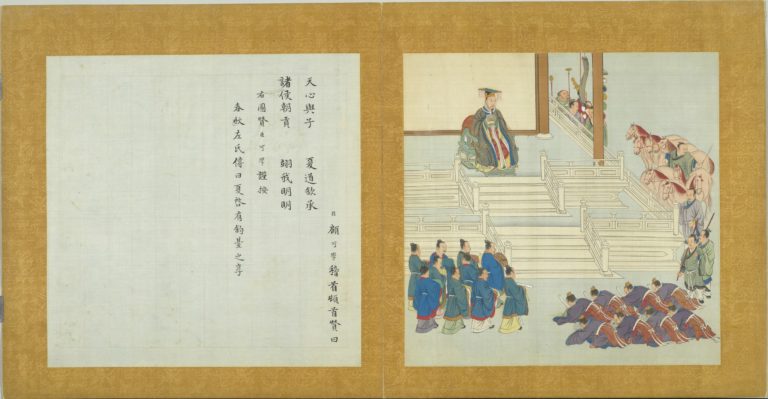 臣顧可學稽首頓首贊曰
天心與子　夏道欽承
諸侯朝貢　翊我明明
右圖贊臣可學謹按
春秋左氏傳曰夏啓有鈞臺之享